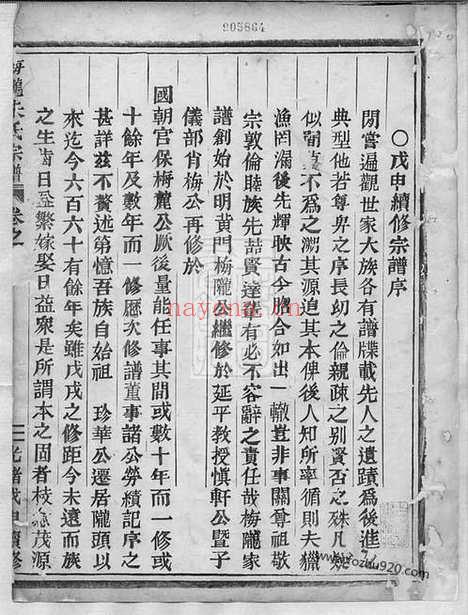 905864
○戊申續修宗譜序
閒嘗遍觀世家大族各有譜牒載先人之遺蹟為後進
典型他若尊卑之序長幼之倫親疎之別賢否之殊凡疑
似闇昧不為之溯其源追其本俾後人知所率循則夫獵
漁罔漏後先輝映古今脗合如出一轍豈非事關尊祖敬
宗敦倫睦族先喆賢達在有必不容辭之責任哉梅隴家
譜創始於明黃門梅隴公繼修於延平教授慎軒公暨子
儀部肖梅公再修於
國朝宮保梅麓公厥後量能任事其間或數十年而一修或
十餘年及數年而一修歷次修譜董事諸公勞績記序之
甚詳茲不贅述第憶吾族自始祖 珍華公遷居隴頭以
來迄今六百六十有餘年矣雖戊戌之修距今未遠而族
之生齒日益繁嫁娶日益衆是所謂本之固者枝茂源
宗譜 卷之
一 光緒戊申續修
nayona.cn
www.fozhu920.com